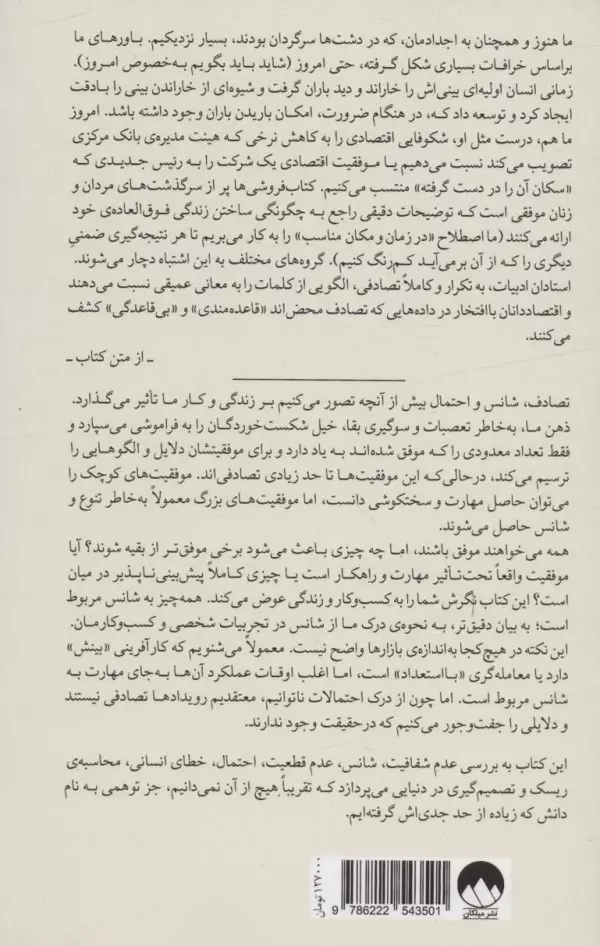 ما هنوز و همچنان به اجدادمان، که در دشت‌ها سرگردان بودند، بسیار نزدیکیم. باورهای ما
براساس خرافات بسیاری شکل گرفته، حتی امروز (شاید باید بگویم به‌خصوص امروز).
زمانی انسان اولیه‌ای بینی‌اش را خاراند و دید باران گرفت و شیوه‌ای از خاراندن بینی را بادقت
ایجاد کرد و توسعه داد که، در هنگام ضرورت، امکان باریدن باران وجود داشته باشد. امروز
ما هم، درست مثل او، شکوفایی اقتصادی را به کاهش نرخی که هیئت مدیره‌ی بانک مرکزی
تصویب می‌کند نسبت می‌دهیم یا موفقیت اقتصادی یک شرکت را به رئیس جدیدی که
«سکان آن را در دست گرفته» منتسب می‌کنیم. کتاب‌فروشی‌ها پر از سرگذشت‌های مردان و
زنان موفقی است که توضیحات دقیقی راجع به چگونگی ساختن زندگی فوق‌العاده‌ی خود
ارائه می‌کنند (ما اصطلاح «در زمان و مکان مناسب» را به کار می‌بریم تا هر نتیجه‌گیری ضمنیِ
دیگری را که از آن برمی‌آید کم‌رنگ کنیم). گروه‌های مختلف به این اشتباه دچار می‌شوند.
استادان ادبیات، به تکرار و کاملاً تصادفی، الگویی از کلمات را به معانی عمیقی نسبت می‌دهند
و اقتصاددانان باافتخار در داده‌هایی که تصادف محض‌اند «قاعده‌مندی» و «بی‌قاعدگی» کشف
می‌کنند.
ـ از متن کتاب ـ
تصادف، شانس و احتمال بیش از آنچه تصور می‌کنیم بر زندگی و کار ما تأثیر می‌گذارد.
ذهن ما، به‌خاطر تعصبات و سوگیری بقا، خیل شکست‌خوردگان را به فراموشی می‌سپارد و
فقط تعداد معدودی را که موفق شده‌اند به یاد دارد و برای موفقیتشان دلایل و الگوهایی را
ترسیم می‌کند، درحالی‌که این موفقیت‌ها تا حد زیادی تصادفی‌اند. موفقیت‌های کوچک را
می‌توان حاصل مهارت و سختکوشی دانست، اما موفقیت‌های بزرگ معمولاً به‌خاطر تنوع و
شانس حاصل می‌شوند.
همه می‌خواهند موفق باشند، اما چه چیزی باعث می‌شود برخی موفق‌تر از بقیه شوند؟ آیا
موفقیت واقعاً تحت‌تأثیر مهارت و راهکار است یا چیزی کاملاً پیش‌بینی‌ناپذیر در میان
است؟ این کتاب نگرش شما را به کسب‌وکار و زندگی عوض می‌کند. همه‌چیز به شانس مربوط
است؛ به بیان دقیق‌تر، به نحوه‌ی درک ما از شانس در تجربیات شخصی و کسب‌وکارمان.
این نکته در هیچ‌کجا به‌اندازه‌ی بازارها واضح نیست. معمولاً می‌شنویم که کارآفرینی «بینش»
دارد یا معامله‌گری «بااستعداد» است، اما اغلب اوقات عملکرد آن‌ها به‌جای مهارت به
شانس مربوط است. اما چون از درک احتمالات ناتوانیم، معتقدیم رویدادها تصادفی نیستند
و دلایلی را جفت‌وجور می‌کنیم که درحقیقت وجود ندارند.
این کتاب به بررسی عدم شفافیت، شانس، عدم قطعیت، احتمال، خطای انسانی، محاسبه‌ی
ریسک و تصمیم‌گیری در دنیایی می‌پردازد که تقریباً هیچ از آن نمی‌دانیم، جز توهمی به نام
دانش که زیاده از حد جدی‌اش گرفته‌ایم.
۱۳۷۰۰۰ تومان
9 786222 543501
نشر میلکان